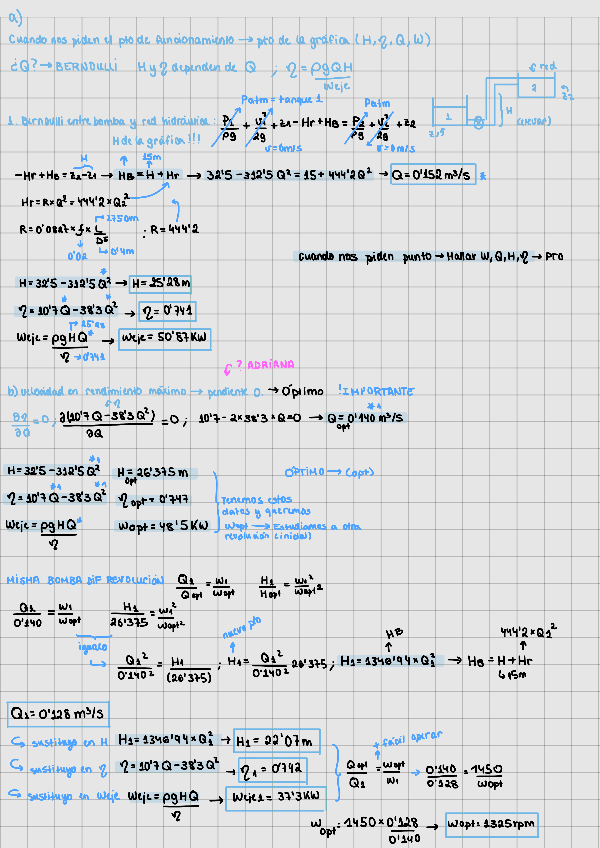 a)
Cuando nos piden el pto de funcionamiento → pto de la gráfica (H, η, Q, W)
¿Q? → BERNOULLI H y η dependen de Q ; η = ρgQH / Weje
Patm = tanque 1 Patm
1. Bernoulli entre bomba y red hidráulica: P1/ρg + V1²/2g + z1 - Hr + HB = P2/ρg + V2²/2g + z2
H de la gráfica!!! v=0m/s v=0m/s
red
1 2
H
(elevar)
H 15m
-Hr + HB = z2 - z1 → HB = H + Hr → 32'5 - 312'5Q² = 15 + 444'2Q² → Q = 0'152 m³/s *
Hr = R × Q² = 444'2 × Q²
2750m
R = 0'0827 × f × L/D⁵ ; R = 444'2
0'02 0'4m
Cuando nos piden punto → Hallar W, Q, H, η → PTO
H = 32'5 - 312'5Q² → H = 25'28m
η = 10'7Q - 38'3Q² → η = 0'741
Weje = ρgHQ / η → Weje = 50'87KW
25'28
0'741
? ADRIANA
b) velocidad en rendimiento máximo → pendiente 0. → Óptimo ! IMPORTANTE
∂η/∂Q = 0 ; ∂(10'7Q - 38'3Q²)/∂Q = 0 ; 10'7 - 2×38'3×Q = 0 → Qopt = 0'140 m³/s
H = 32'5 - 312'5Q² Hopt = 26'375m
ÓPTIMO → (opt)
η = 10'7Q - 38'3Q² ηopt = 0'747
Weje = ρgHQ / η Wopt = 48'5KW
Tenemos estos
datos y queremos
Wopt → Estudiamos a otra
revolución (inicial)
MISMA BOMBA DIF REVOLUCIÓN Q1/Qopt = W1/Wopt H1/Hopt = W1²/Wopt²
Q1/0'140 = W1/Wopt H1/26'375 = W1²/Wopt²
igualo
nuevo pto
HB
444'2×Q1²
Q1²/0'140² = H1/(26'375) ; H1 = Q1²/0'140² 26'375 ; H1 = 1346'94×Q1² → HB = H + Hr
15m
Q1 = 0'128 m³/s
sustituyo en H H1 = 1346'94×Q1² → H1 = 22'07m
+ fácil operar
sustituyo en η η = 10'7Q - 38'3Q² → η1 = 0'742
Qopt/Q1 = Wopt/W1 → 0'140/0'128 = 1450/Wopt
sustituyo en Weje Weje = ρgHQ / η → Weje1 = 37'3KW
Wopt = 1450 × 0'128/0'140 → Wopt = 1325rpm